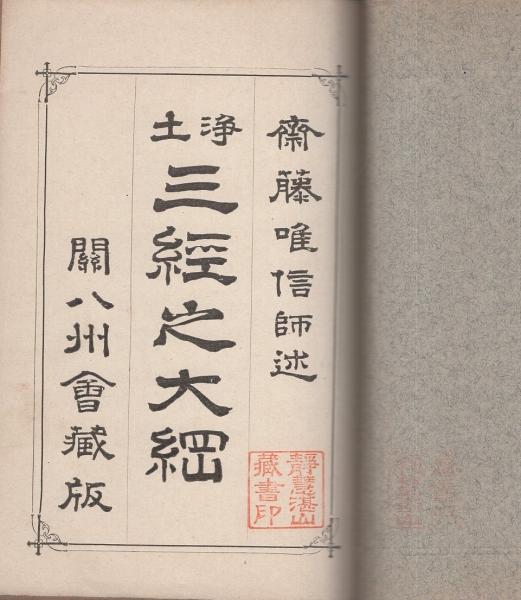 齋藤唯信師述
浄土
三經之大綱
關八州會藏版
靜慧湛山
藏書印